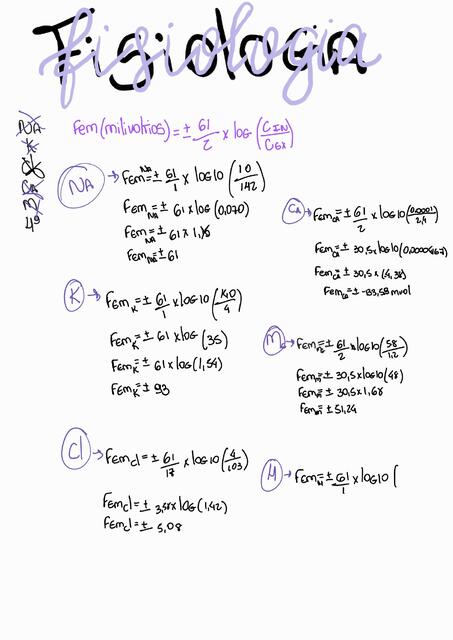 Fisiologia
NA
K
Fem(milivoltios) = ± 61/2 x log (CIN/CEX)
NA → Fem NA = ± 61/1 x log10 (10/142)
Fem NA = ± 61 x log (0,070)
Fem NA = ± 61 x 1,15
Fem NA = ± 61
CA → Fem CA = ± 61/2 x log10 (0,0001/2,4)
Fem CA = ± 30,5 x log10 (0,0000467)
Fem CA = ± 30,5 x (-4,38)
Fem CA = ± -33,58 mvol
K → Fem K = ± 61/1 x log10 (140/4)
Fem K = ± 61 x log (35)
Fem K = ± 61 x log (1,54)
Fem K = ± 93
= ± 61/2 x log10 (58/1,2)
= ± 30,5 x log10 (48)
= ± 30,5 x 1,68
= ± 51,24
Cl → Fem cl = ± 61/17 x log10 (4/103)
Fem cl = ± 3,58 x log (1,42)
Fem cl = ± 5,08
M → Fem M = ± 61/1 x log10 (